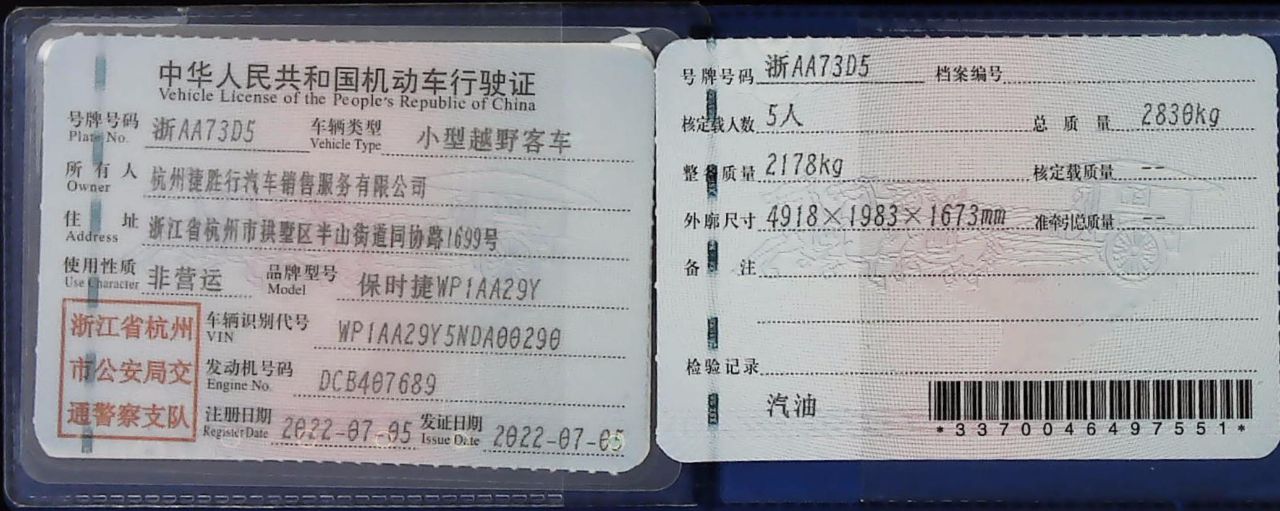 中华人民共和国机动车行驶证
Vehicle License of the People's Republic of China
号牌号码 浙AA73D5 车辆类型 小型越野客车
Plate No. Vehicle Type
所有人 杭州捷胜行汽车销售服务有限公司
Owner
住址 浙江省杭州市拱墅区半山街道同协路1699号
Address
使用性质 非营运 品牌型号 保时捷WP1AA29Y
Use Character Model
浙江省杭州
市公安局交
通警察支队
车辆识别代号 WP1AA29Y5NDA00290
VIN
发动机号码 DCB407689
Engine No.
注册日期 2022-07-05 发证日期 2022-07-05
Register Date Issue Date
号牌号码 浙AA73D5 档案编号
核定载人数 5人 总质量 2830kg
整备质量 2178kg 核定载质量 --
外廓尺寸 4918×1983×1673mm 准牵引总质量 --
备注
检验记录
汽油
*3370046497551*